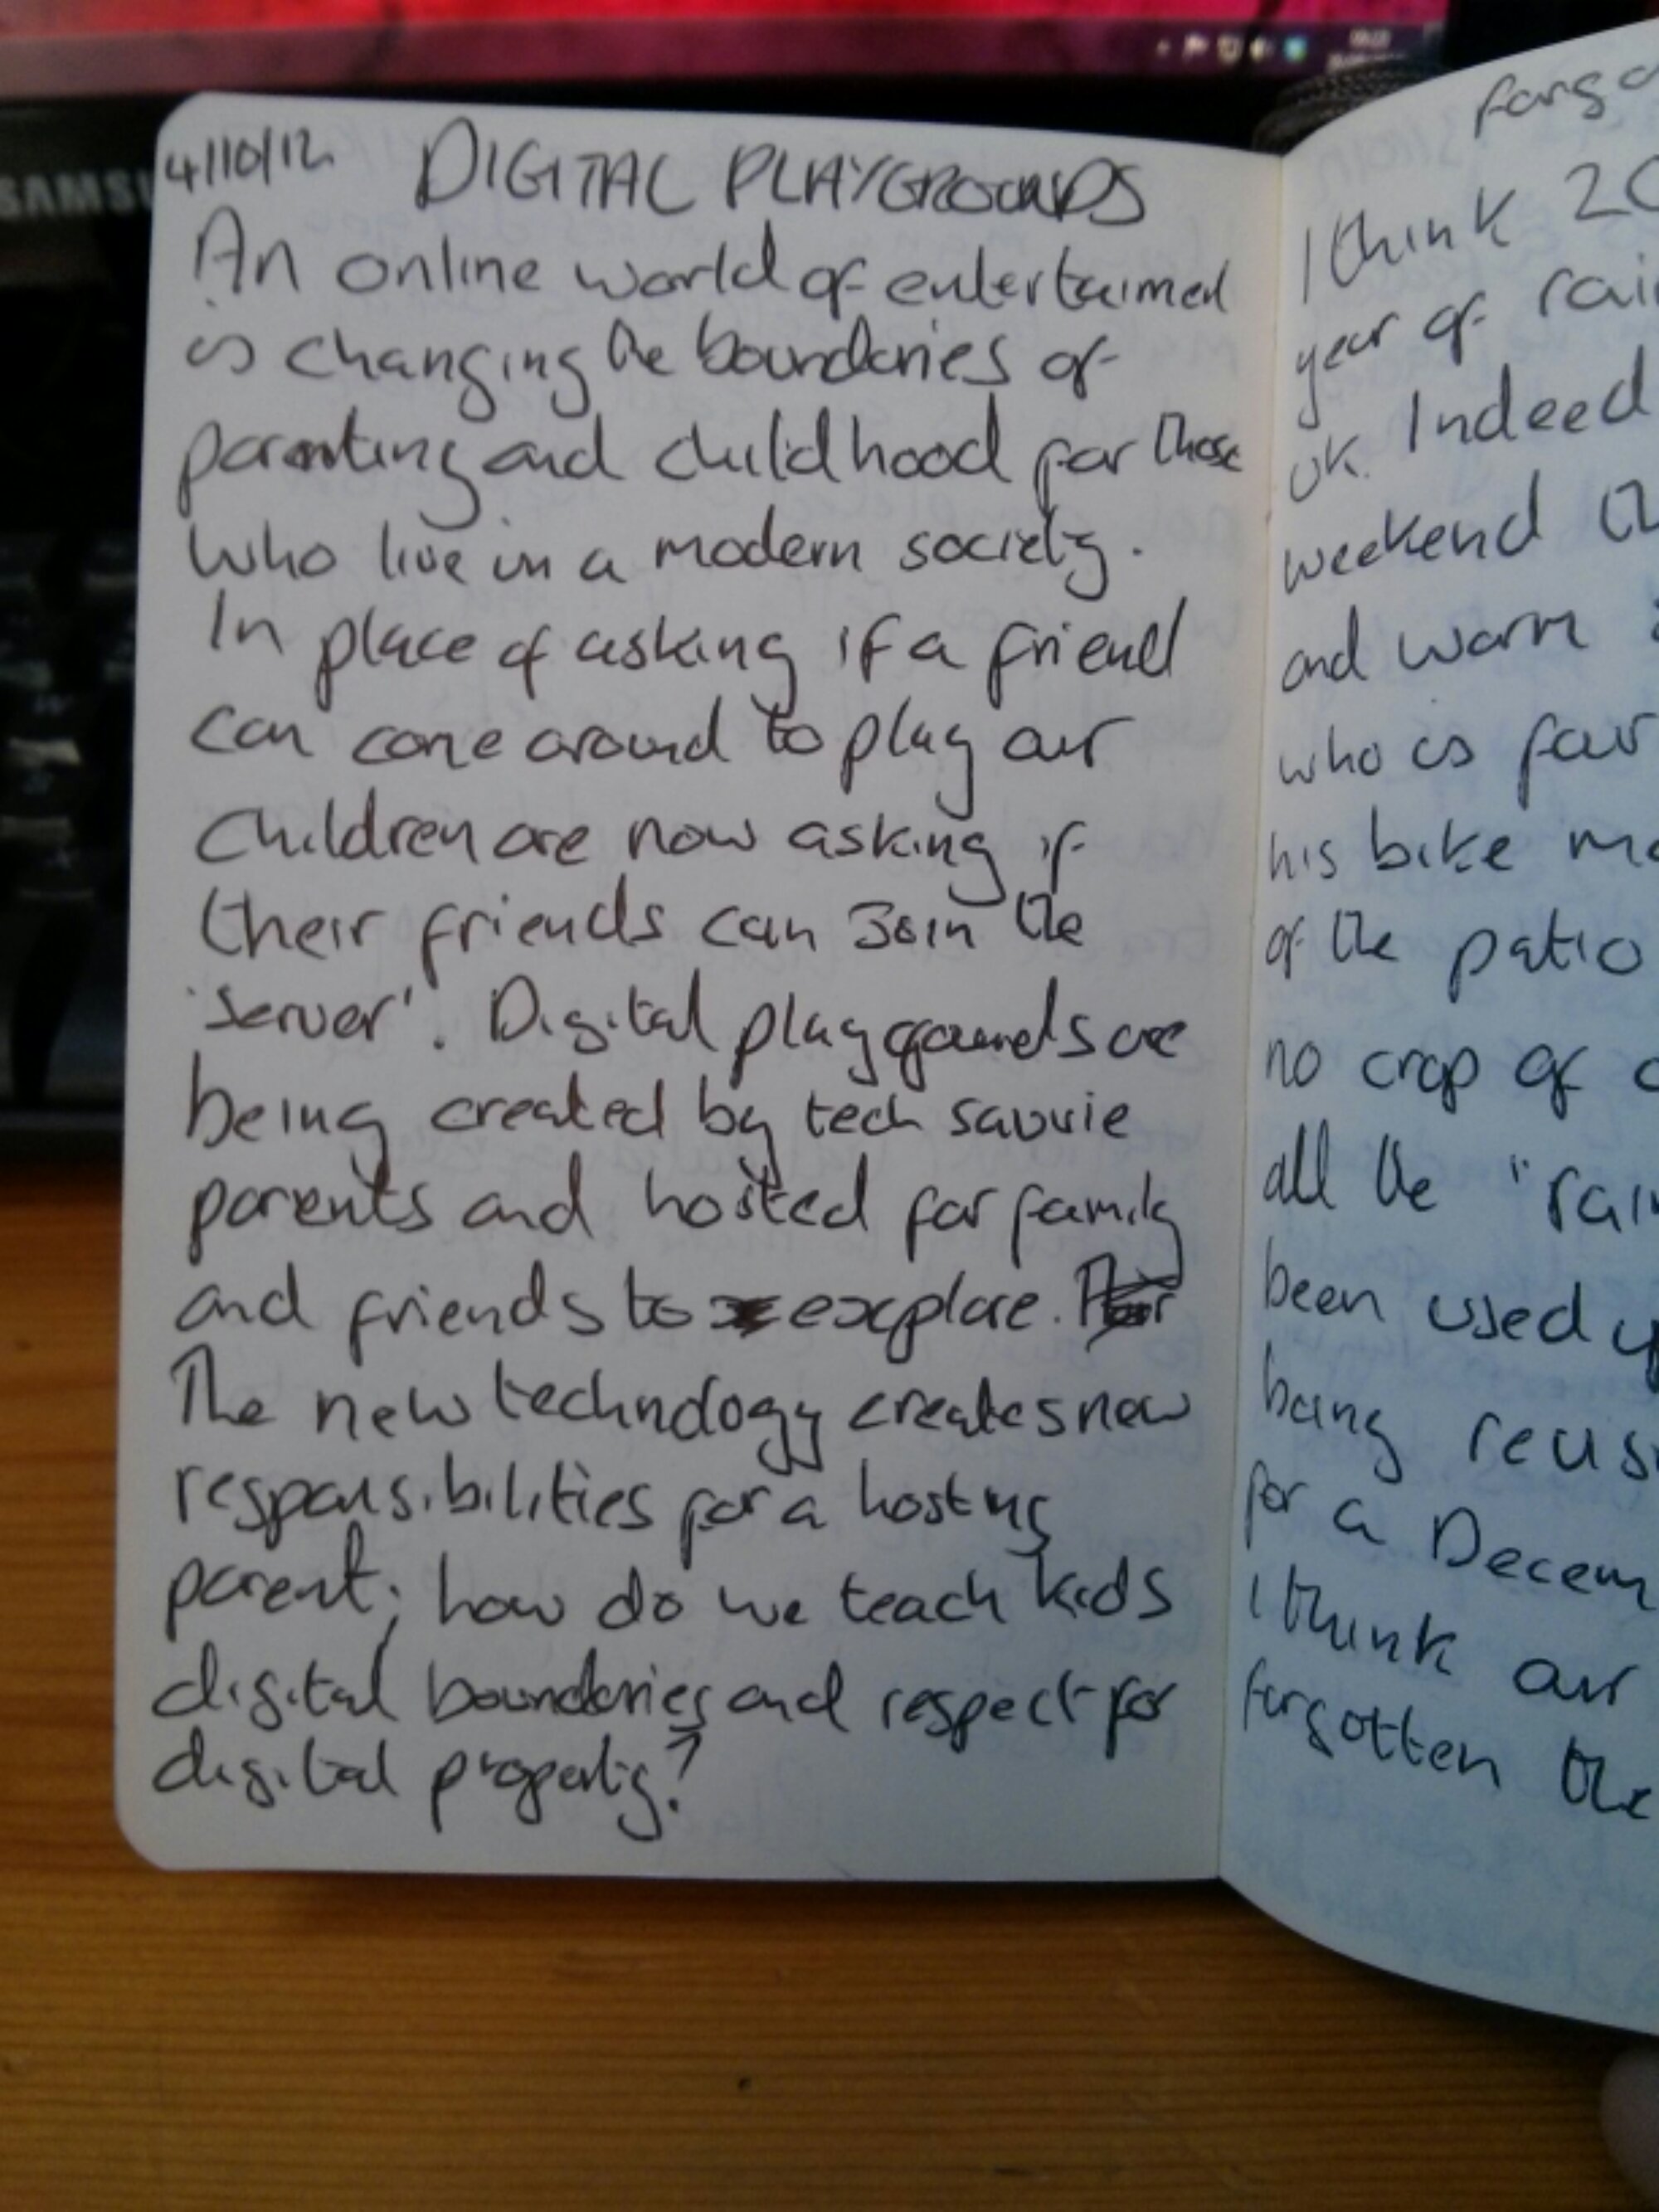 SAMSU
4/10/12 DIGITAL PLAYGROUNDS
An online world of entertainment
is changing the boundaries of
parenting and childhood for those
who live in a modern society.
In place of asking if a friend
can come around to play our
children are now asking if
their friends can join the
'server'. Digital playgrounds are
being created by tech savvie
parents and hosted for family
and friends to explore.
The new technology creates new
responsibilities for a hosting
parent; how do we teach kids
digital boundaries and respect for
digital property?
I think 20
year of rai
uk. Indeed
weekend th
and warm
who is fair
his bike mo
of the patio
no crop of
all the "rain
been used
being reus
for a Decem
I think our
forgotten the